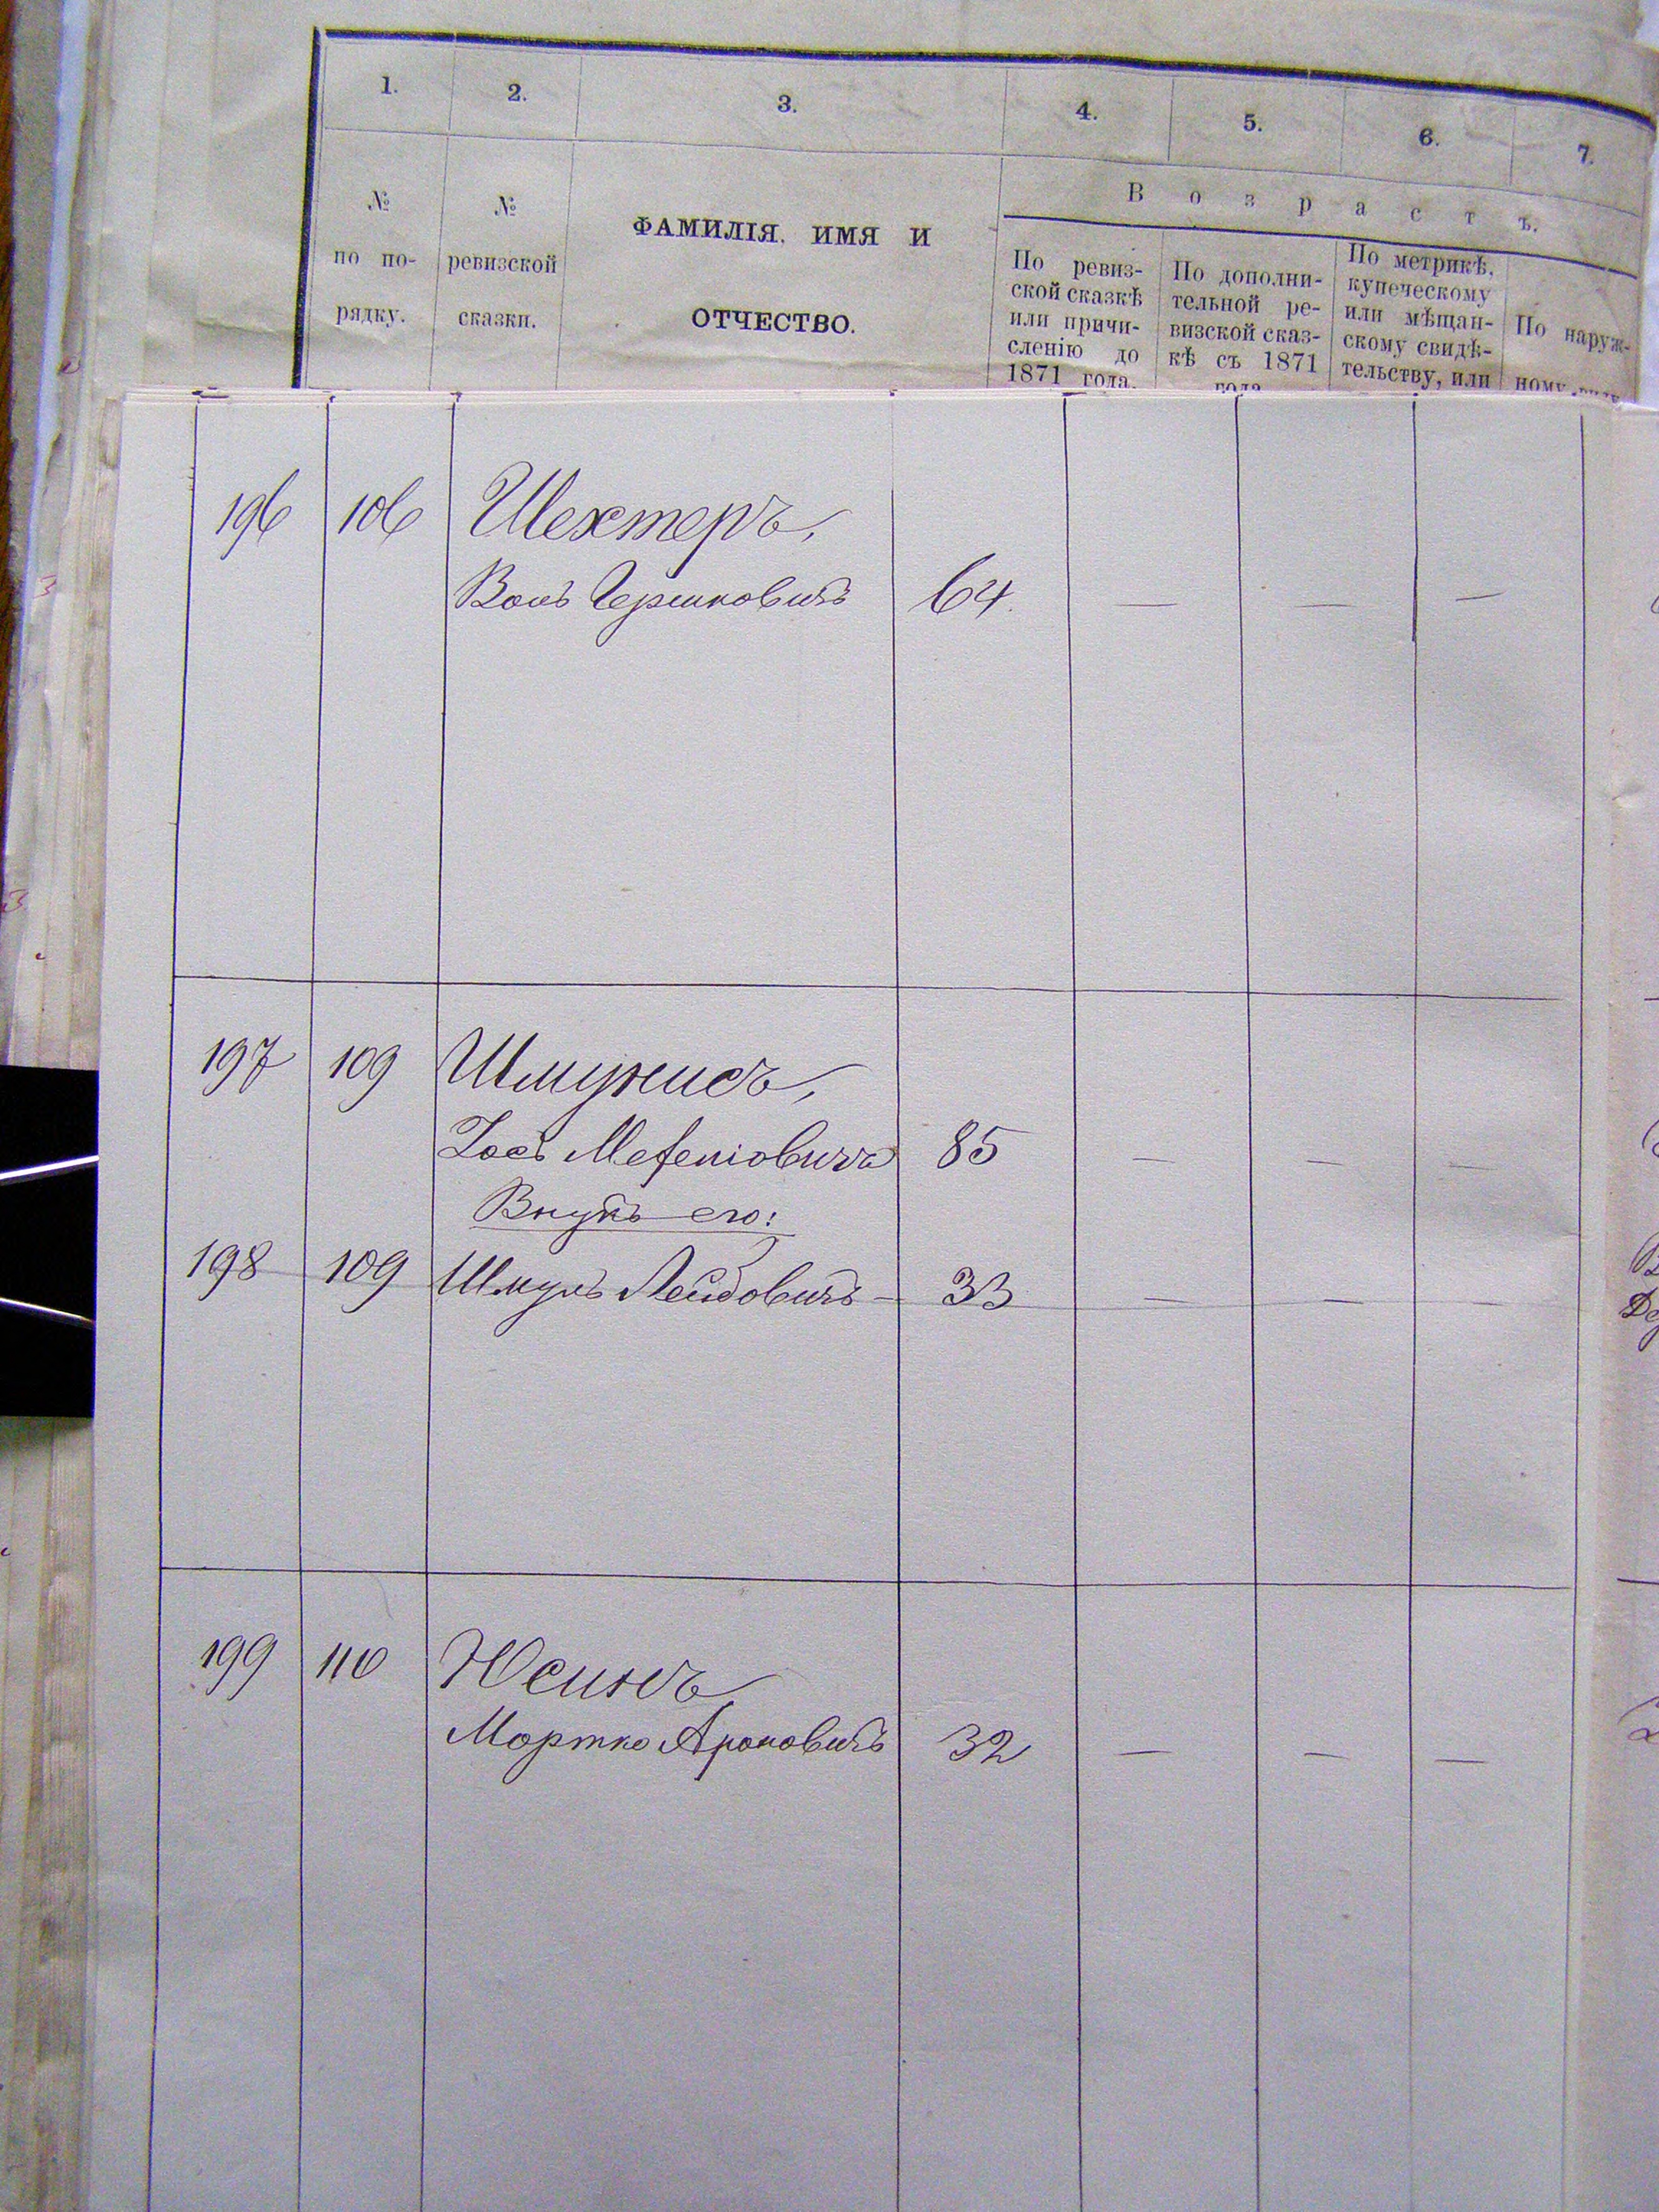 1. 2. 3. 4. 5. 6. 7.
№ по по-рядку.
№ ревизской сказки.
ФАМИЛІЯ, ИМЯ И
ОТЧЕСТВО.
В о з р а с т ъ.
По ревиз-
ской сказкѣ
или причи-
сленію до
1871 года.
По дополни-
тельной ре-
визской сказ-
кѣ съ 1871
года
По метрикѣ,
купеческому
или мѣщан-
скому свидѣ-
тельству, или
По наруж-
ному виду
196 106 Шехтеръ,
Вольъ Гершковичъ 64. — — —
197 109
Іосъ 85 — — —
Внукъ его:
198 109 Шмуль Лейбовичъ — 33 — — —
199 110 Юсинъ
Мортко Ароновичъ 32 — — —